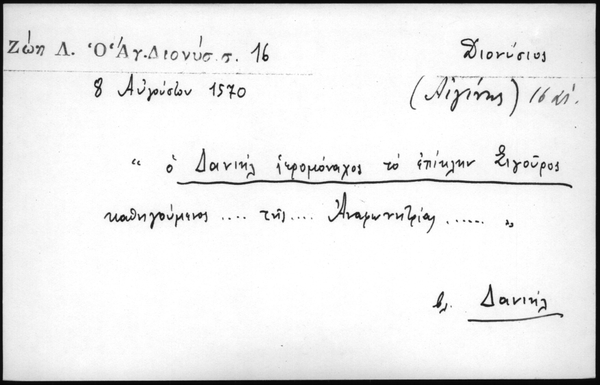 Ζώη Λ. Ὁ Ἅγ. Διονύσ. σ. 16
Διονύσιος
8 Αὐγούστου 1570
(Αἰγίνης) 16 αἰ.
“ ὁ Δανιήλ ἱερομόναχος τό ἐπίκλην Σιγοῦρος
καθηγούμενος .... τῆς .... Ἀναφωνητρίας ...... „
βλ. Δανιήλ